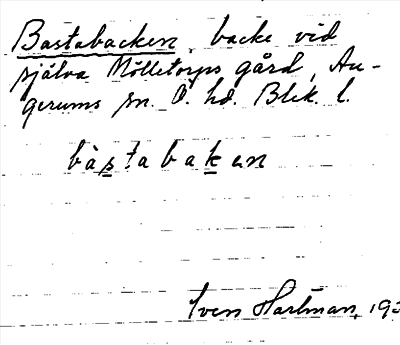 Bastabacken, backe vid
själva Mölletorps gård, Au-
gerums sn. Ö. hd. Blek. l.
bàstabaken
Sven Hartman, 193